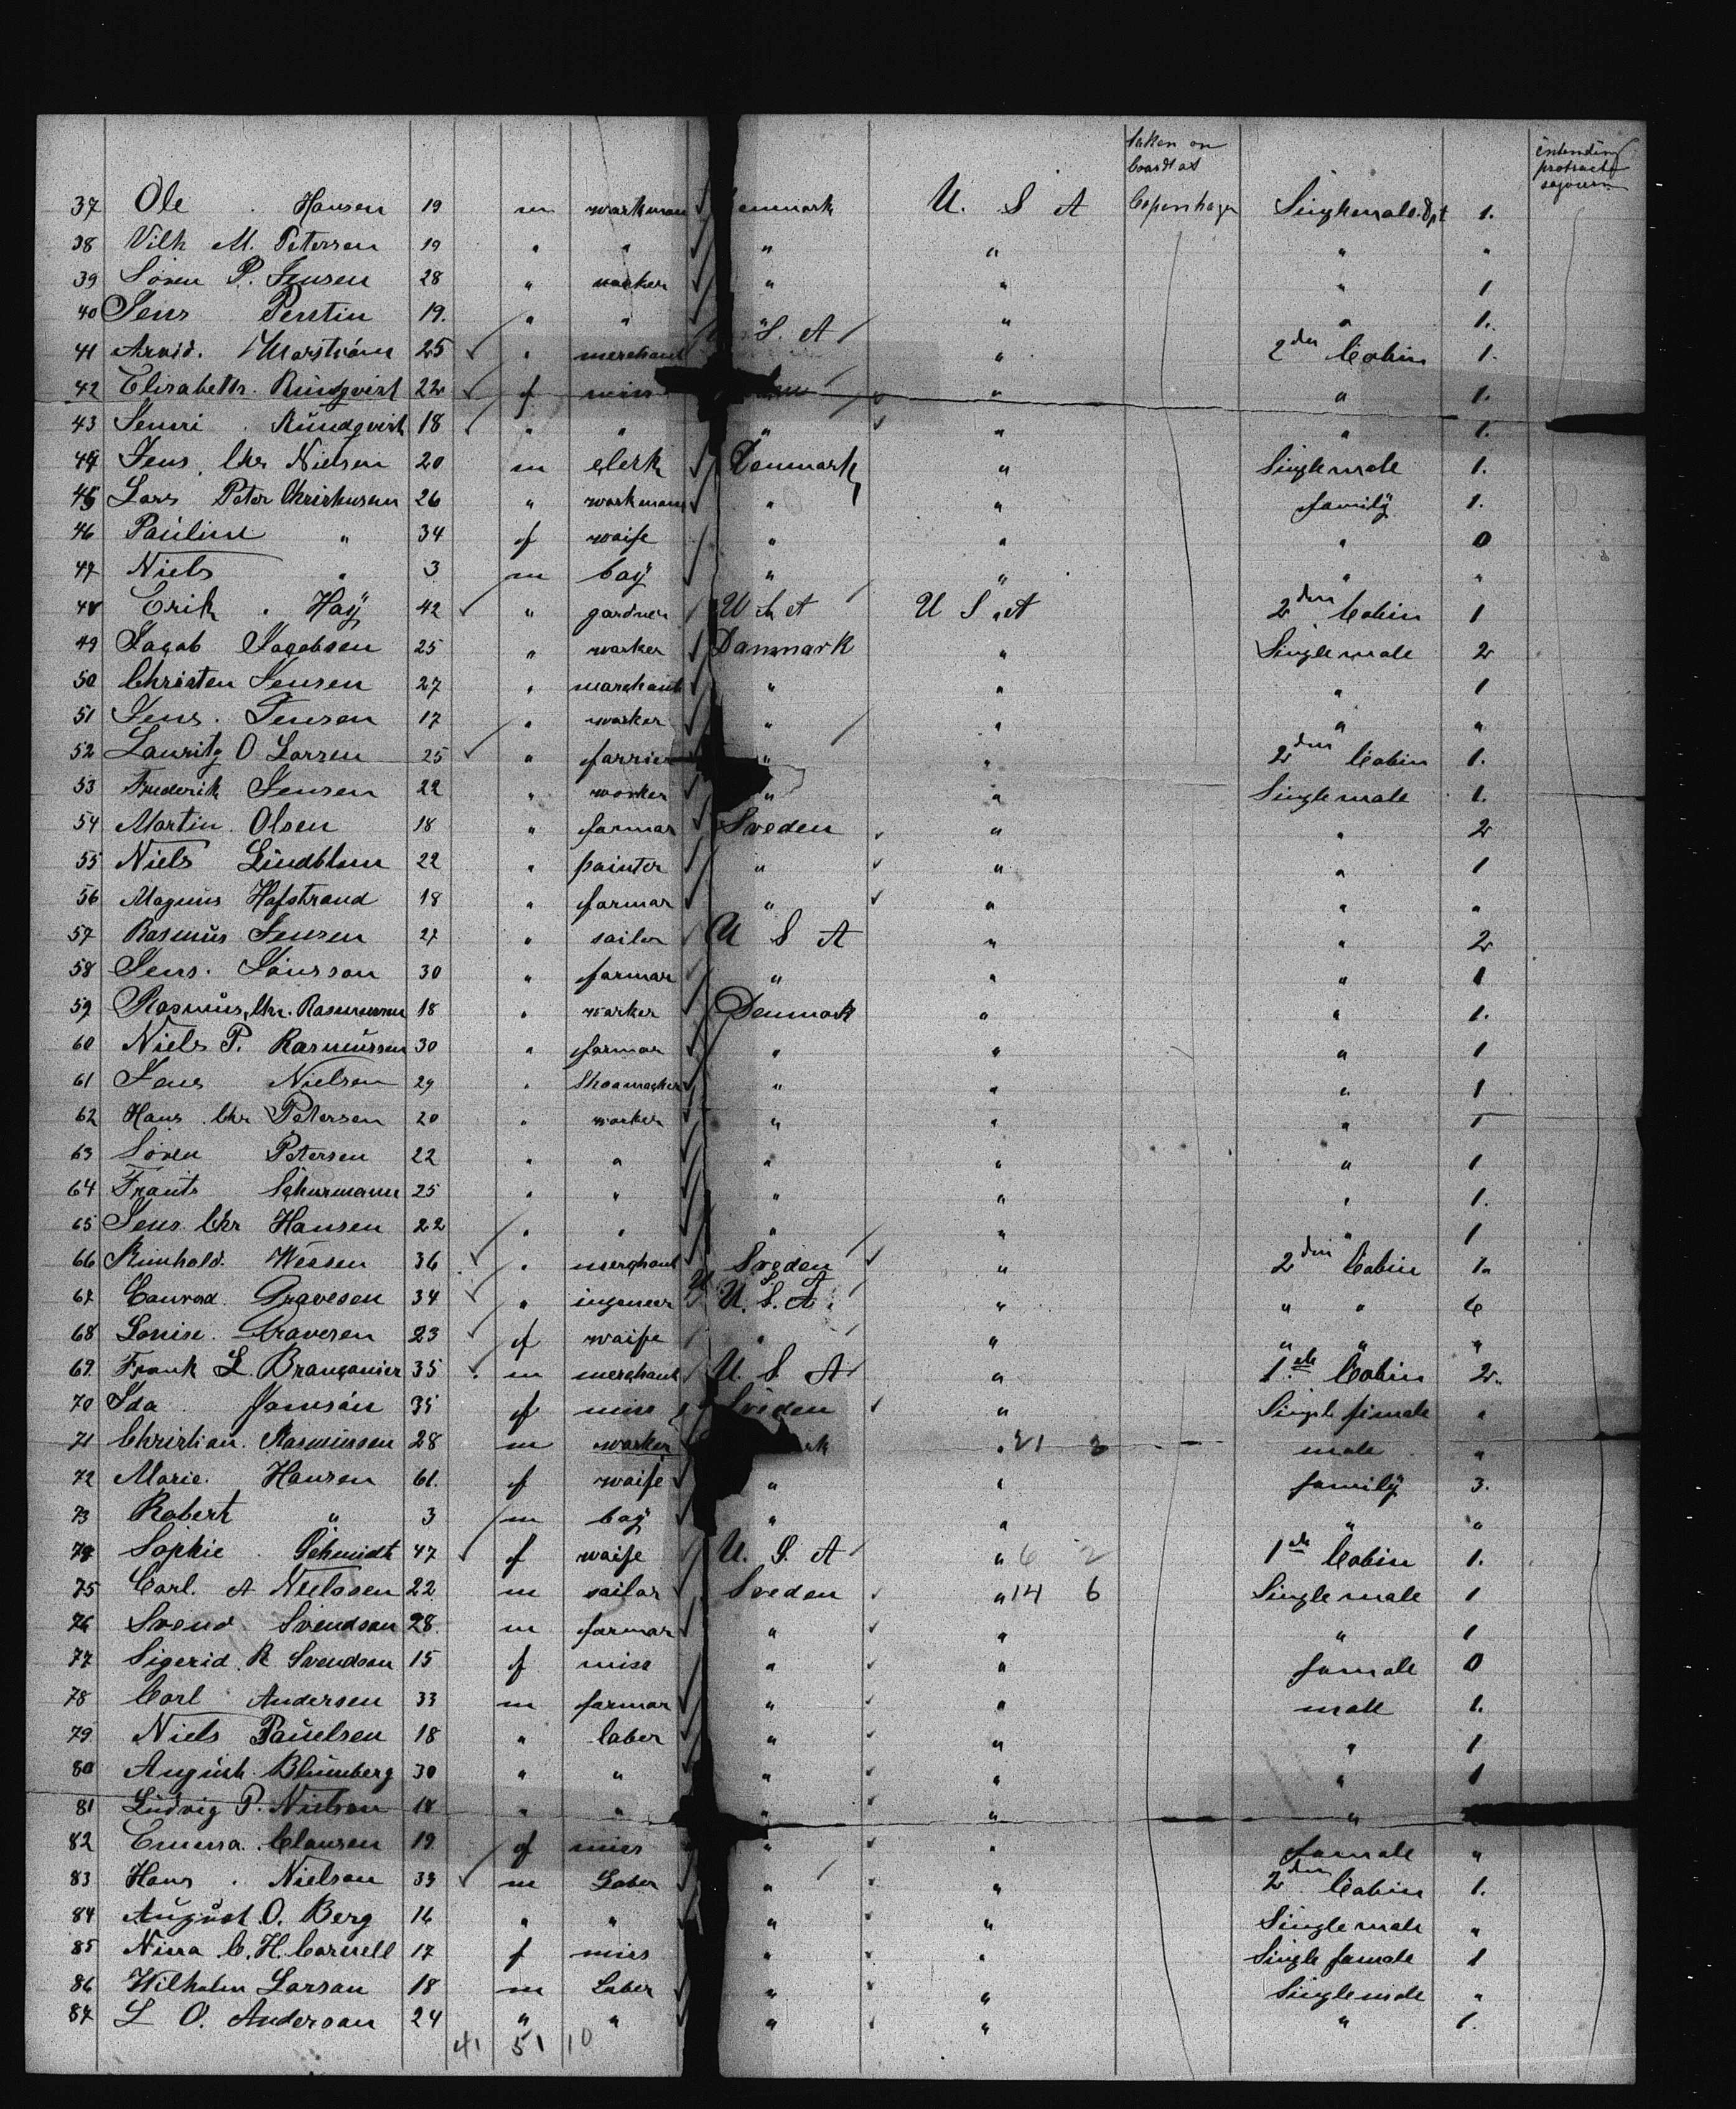 taken on
board at
intending
protracted
sojourn
37 Ole . Hansen 19 m warkman Denmark U. S A Copenhagen Single male. Dpt 1.
38 Vilh M. Petersen 19 " " " " " "
39 Sören P. Jensen 28 " worker " " " 1
40 Jens Perstin 19. " " " " " 1.
41 Arvid. Marström 25 " merchant U. S. A " 2den Cabin 1.
42 Elisabeth. Rundqvist 22 f miss " " 1.
43 Jenni . Rundqvist 18 " " " " " 1.
44 Jens. Chr Nielsen 20 m clerk Denmark " Single male 1.
45 Lars Peter Christensen 26 " workman " " family 1.
46 Pauline " 34 f waife " " " 0
47 Niels " 3 m boy " " " "
48 Erik . Hoy 42 " gardner U S A U S A 2den Cabin 1
49 Jagob Jagobsen 25 " warker Danmark " Single male 2
50 Christen Jensen 27 " marchant " " " 1
51 Jens. Jensen 17 " worker " " " "
52 Lauritz O Larsen 25 " farrier " " 2den Cabin 1.
53 Frederik Jensen 22 " worker " " Single male 1.
54 Martin. Olsen 18 " farmar Sveden " " 2
55 Niels Lindblom 22 " painter " " " 1
56 Magnus Hofstrand 18 " farmar " " " "
57 Rasmus Jensen 27 " sailor U S A " " 2
58 Jens. Jönsson 30 " farmar " " " 1
59 Rasmus, Chr. Rasmussen 18 " warker Denmark " " 1.
60 Niels P. Rasmussen 30 " farmar " " " 1
61 Jens Nielsen 29 " Shoamacher " " " 1
62 Hans Chr Petersen 20 " worker " " " 1
63 Sören Petersen 22 " " " " " 1
64 Frants Schurmann 25 " " " " " 1.
65 Jens Chr Hansen 22 " " " " " 1
66 Reinhold. Wessen 36 " merchant Sveden " 2den Cabin 1.
67 Conrad. Gravesen 34 " ingeneer U. S. A. " " " 6
68 Louise. Gravesen 23 f waife " " " " "
69. Frank L. 35 m merchant U. S. A " 1ste Cabin 2.
70 Ida . Jansån 35 f miss Sveden " Single female "
71 Christian. Rasmussen 28 m warker " 21 3 male "
72 Marie. Hansen 61. f waife " " family 3.
73 Robert " 3 m boy " " " "
74 Sophie . Schmidt 47 f waife U. S. A " 6 2 1ste Cabin 1.
75 Carl. A Nielssen 22 m sailor Sveden " 14 6 Single male 1
76 Svend Svendsen 28. m farmar " " " 1
77 Sigerid R Svendsen 15 f miss " " famale 0
78 Carl Andersen 33 m farmar " " male 1.
79 Niels Pauelsen 18 " laber " " " 1
80 August. Blumberg 30 " " " " " 1
81 Ludvig P. Nielsen 18 " " " " "
82 Emma. Clausen 19 f miss " " famale "
83 Hans . Nielsen 33 m Laber " " 2den Cabin 1.
84 August O. Berg 16 " " " " Single male "
85 Nina C. H. 17 f miss " " Single famale 1
86 Wilhelm Larson 18 m Laber " " Single male "
87 L O. Anderson 24 " " " " " 1.
41 51 10